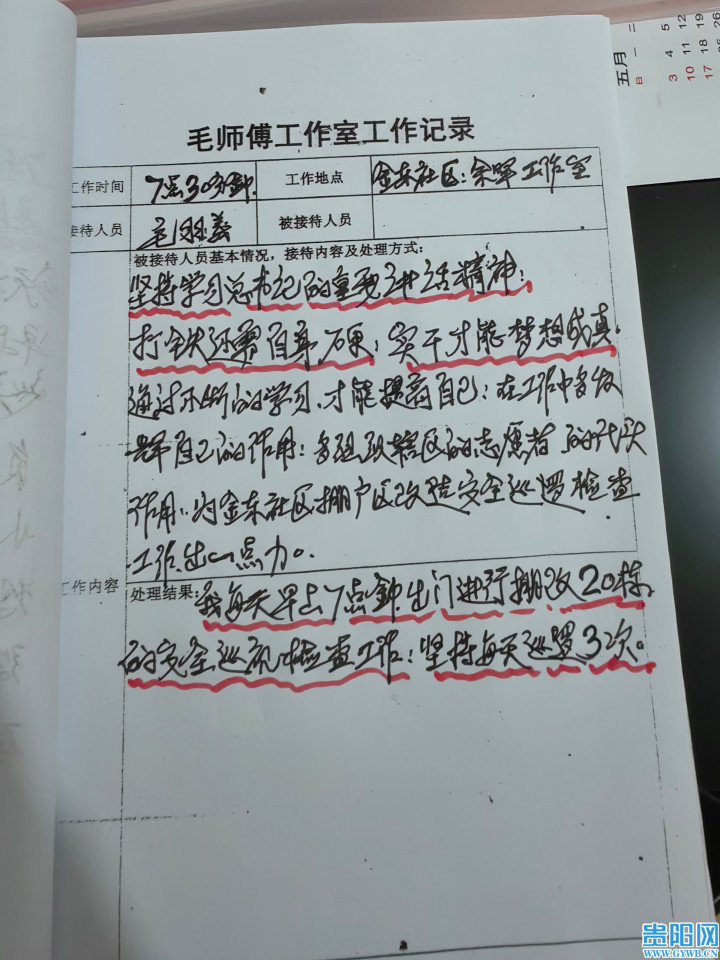 五月
日 一 二
3 4 5
10 11 12
17 18 19
25 26
毛师傅工作室工作记录
工作时间 7点30分钟. 工作地点 金东社区:余晖工作室
接待人员 毛 义 被接待人员
被接待人员基本情况,接待内容及处理方式:
坚持学习总书记的重要讲话精神:
打铁还需自身硬:实干才能梦想成真.
通过不断的学习.才能提高自己:在工作中多发
挥自己的作用:多组织辖区的志愿者的代头
作用:为金东社区棚户区改造安全巡逻检查
工作出一点力。
工作内容
处理结果:我每天早上7点钟出门进行棚改20栋
的安全巡视检查工作:坚持每天巡逻3次。
贵阳网
WWW.GYWB.CN